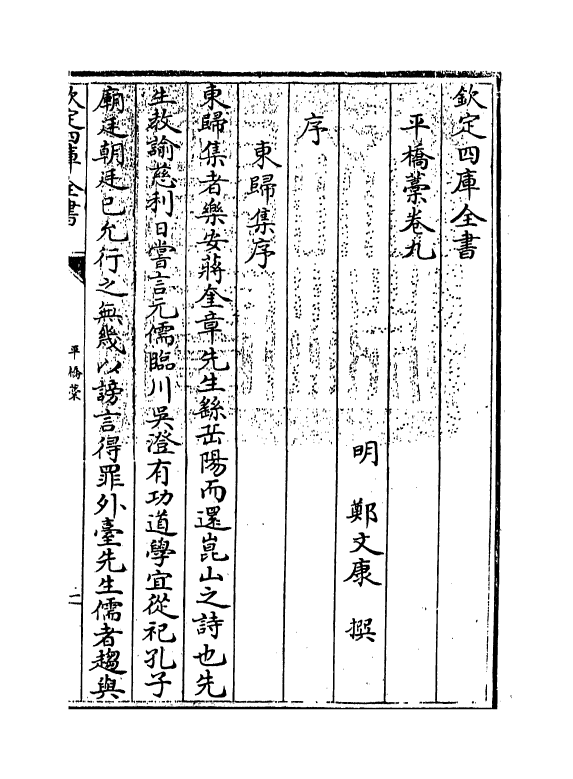 欽定四庫全書
平橋藁卷九
明 鄭文康 撰
序
東歸集序
東歸集者樂安蔣奎章先生繇岳陽而還崑山之詩也先
生教諭慈利日嘗言元儒臨川吳澄有功道學宜從祀孔子
廟廷朝廷已允行之無幾以謗言得罪外臺先生儒者趨與
欽定四庫全書
平橋藁
一